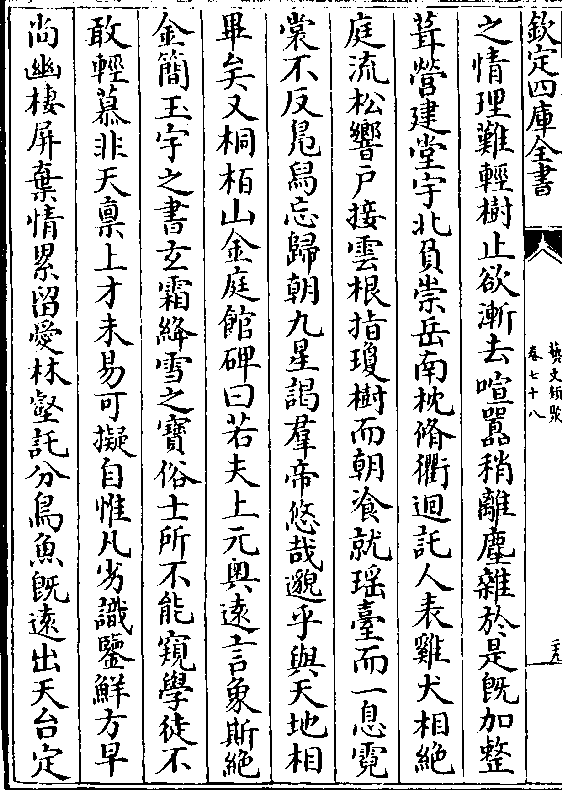 欽定四庫全書
藝文類聚
卷七十八
之情理難輕樹止欲漸去喧囂稍離塵雜於是既加整
葺營建堂宇北負崇岳南枕脩衢迴託人表雞犬相絶
庭流松響戸接雲根指瓊樹而朝飡就瑶臺而一息霓
裳不反鳬舄忘歸朝九星謁羣帝悠哉邈乎與天地相
畢矣又桐栢山金庭館碑曰若夫上元奥遠言象斯絶
金簡玉字之書玄霜絳雪之寳俗士所不能窺學徒不
敢輕慕非天禀上才未易可擬自惟凡劣識鑒鮮方早
尚幽棲屏棄情累留愛林壑託分鳥魚既遠出天台定